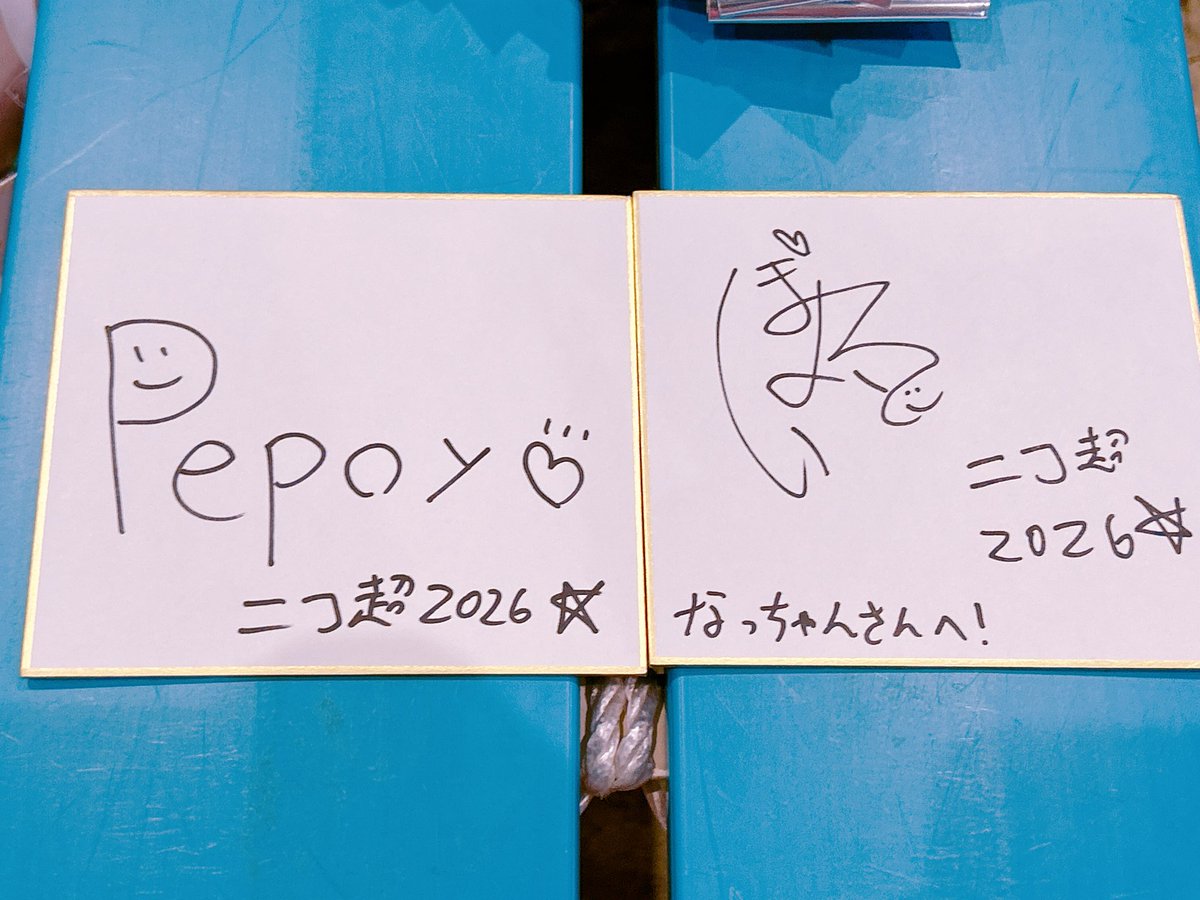 Pepoy
ニコ超2026
ニコ超
2026
なっちゃんさんへ!